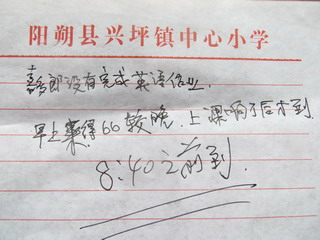 阳朔县兴坪镇中心小学
喜郎没有完成英语作业.
早上来得比较晚.上课响了后才到.
8:40之前到.